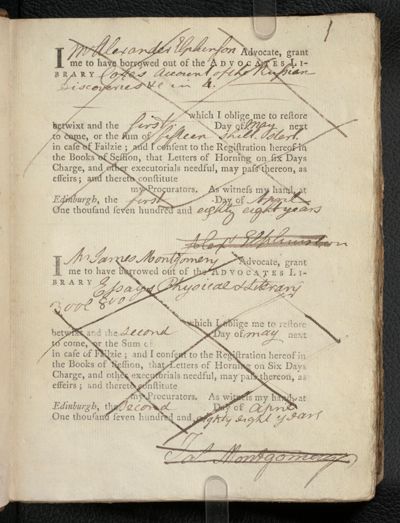 1
I Mr Alexander Elphinston Advocate, grant
me to have borrowed out of the ADVOCATES LI-
BRARY Coxes account of the Russian
Discoveries &c in 4.
which I oblige me to restore
betwixt and the first Day of May next
to come, or the sum of fifteen shill. Sterl.
in case of Failzie; and I consent to the Registration hereof in
the Books of Session, that Letters of Horning on six Days
Charge, and other executorials needful, may pass thereon, as
effeirs; and thereto constitute
my Procurators. As witness my hand, at
Edinburgh, the first Day of April
One thousand seven hundred and eighty eight years
Alexr Elphinston
I Mr James Montgomery Advocate, grant
me to have borrowed out of the ADVOCATES LI-
BRARY Essays Physical & Literary
3 vol 8vo
which I oblige me to restore
betwixt and the second Day of may next
to come, or the Sum of
in case of Failzie; and I consent to the Registration hereof in
the Books of Session, that Letters of Horning on Six Days
Charge, and other executorials needful, may pass thereon, as
effeirs; and thereto constitute
my Procurators. As witness my hand, at
Edinburgh, the Second Day of April
One thousand seven hundred and eighty eight years
Jas Montgomery